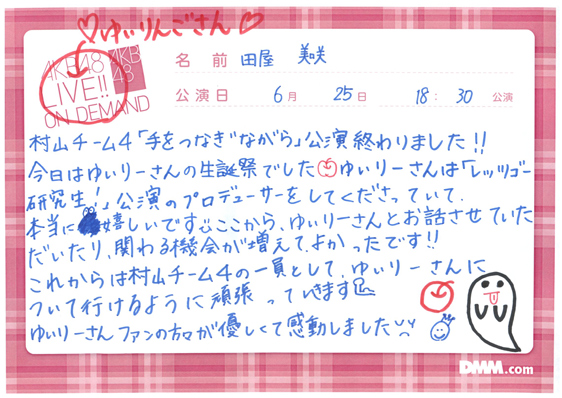 ♡ゆいりんごさん♡
AKB48
LIVE!!
ON DEMAND
AKB
48
名前 田屋 美咲
公演日 6月 25日 18:30 公演
村山チーム4「手をつなぎながら」公演終わりました!!
今日はゆいりーさんの生誕祭でしたゆいりーさんは「レッツゴー
研究生!」公演のプロデューサーをしてくださっていて、
本当に嬉しいですここから、ゆいりーさんとお話させていた
だいたり、関わる機会が増えて、よかったです!!
これからは村山チーム4の一員として、ゆいりーさんに
ついて行けるように頑張っていきます
ゆいりーさんファンの方々が優しくて感動しました
DMM.com